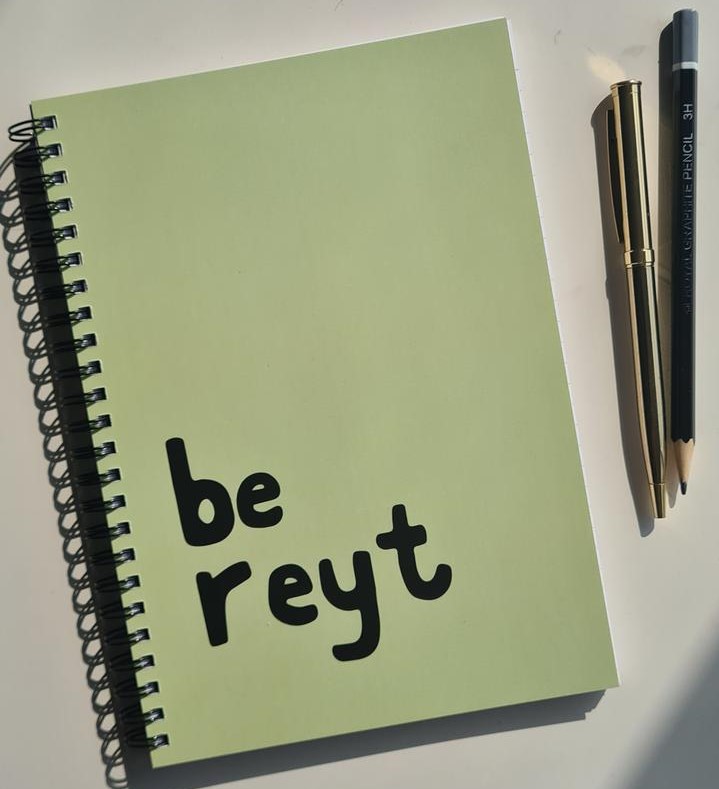 be
reyt
ROYAL GRAPHITE PENCIL 3H